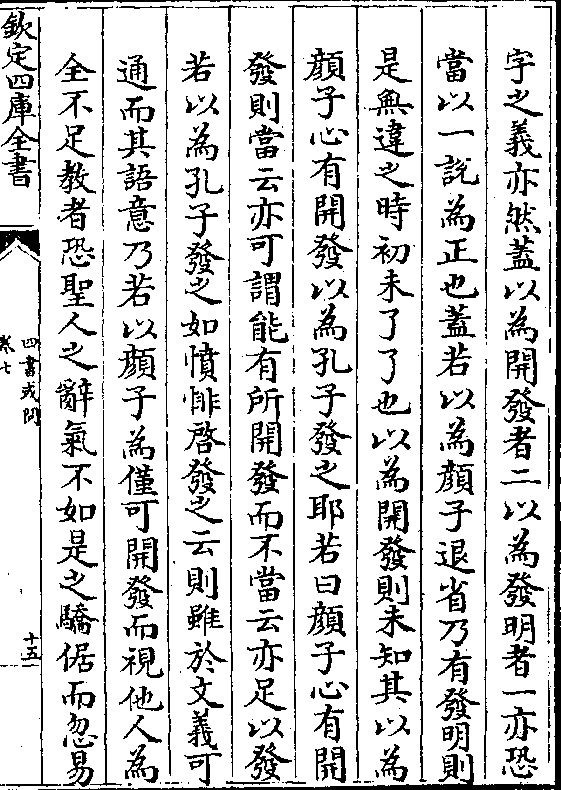 字之義亦然蓋以為開發者二以為發明者一亦恐
當以一說為正也蓋若以為顔子退省乃有發明則
是無違之時初未了了也以為開發則未知其以為
顔子心有開發以為孔子發之耶若曰顔子心有開
發則當云亦可謂能有所開發而不當云亦足以發
若以為孔子發之如憤悱啓發之云則雖於文義可
通而其語意乃若以顔子為僅可開發而視他人為
全不足教者恐聖人之辭氣不如是之驕倨而忽易
欽定四庫全書
四書或問
卷七
十五